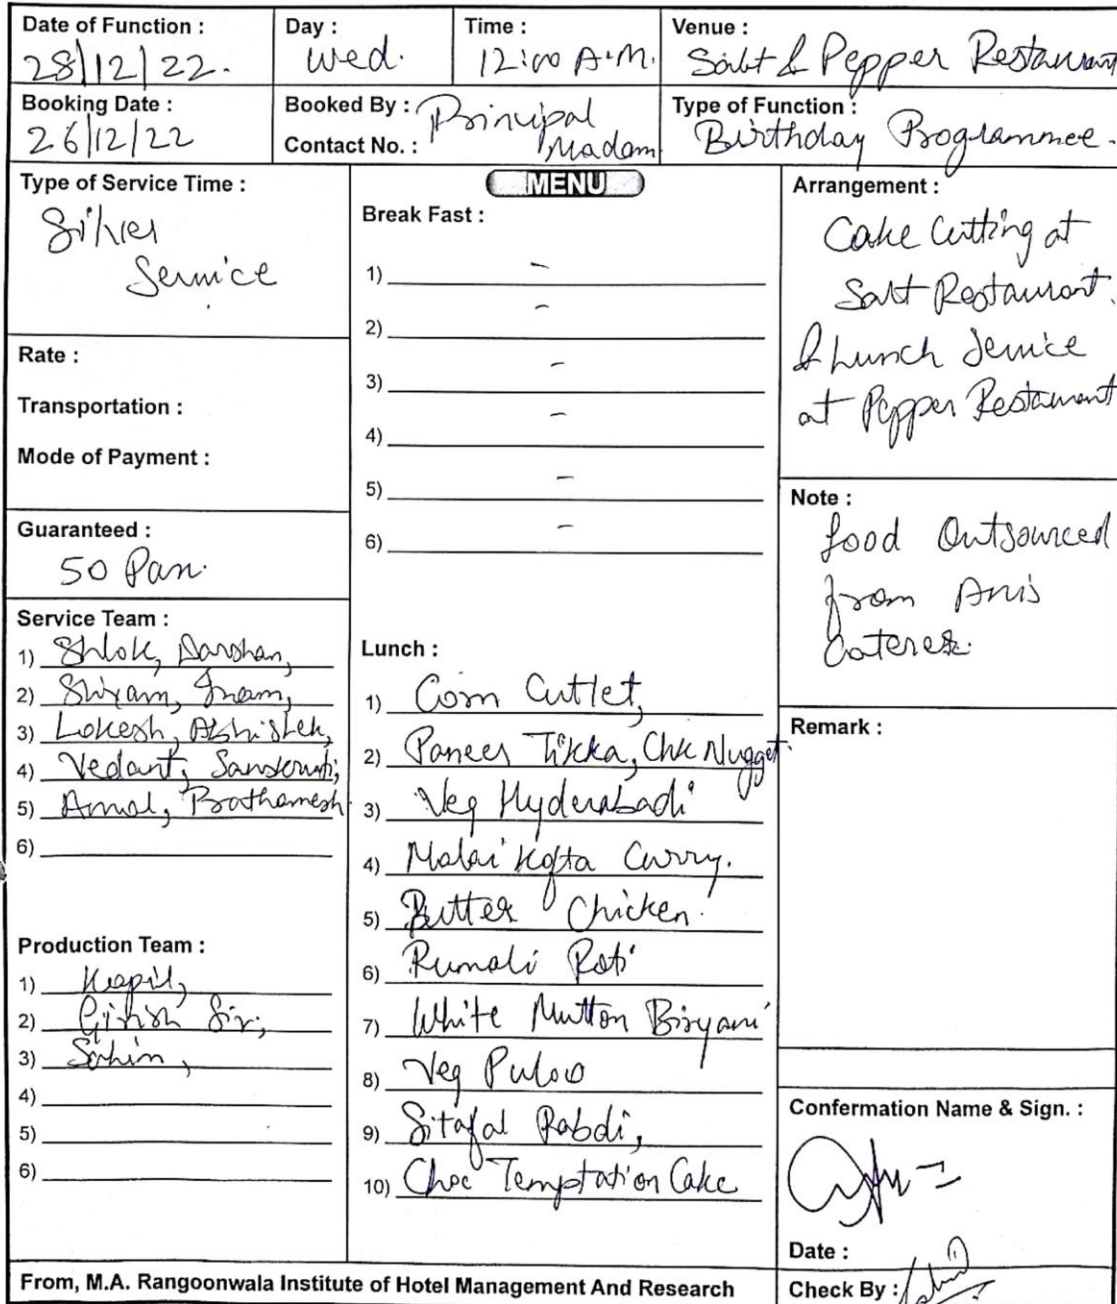 Date of Function :
28/12/22.
Day :
Wed.
Time :
12:00 A.M.
Venue :
Salt & Pepper Restaurant
Booking Date :
26/12/22
Booked By : Principal Madam
Contact No. :
Type of Function :
Birthday Programmee.
Type of Service Time :
Silver
Service
Rate :
Transportation :
Mode of Payment :
Guaranteed :
50 Pax.
Service Team :
1) Shlok, Darshan,
2) Shyam, Inam,
3) Lokesh, Abhishek,
4) Vedant, Sanskruti,
5) Amol, Prathamesh
6)
Production Team :
1) Kapil,
2) Girish Sir,
3) Sahim,
4)
5)
6)
MENU
Break Fast :
1) -
2) -
3) -
4) -
5) -
6) -
Lunch :
1) Corn Cutlet,
2) Paneer Tikka, Chk Nugget.
3) Veg Hyderabadi
4) Malai Kofta Curry.
5) Butter Chicken.
6) Rumali Roti
7) White Mutton Biryani
8) Veg Pulao
9) Sitafal Rabdi,
10) Choc Temptation Cake
Arrangement :
Cake Cutting at
Salt Restaurant.
& Lunch Service
at Pepper Restaurant
Note :
food Outsourced
from Anis
Caterer.
Remark :
Confermation Name & Sign. :
Date :
Check By :
From, M.A. Rangoonwala Institute of Hotel Management And Research